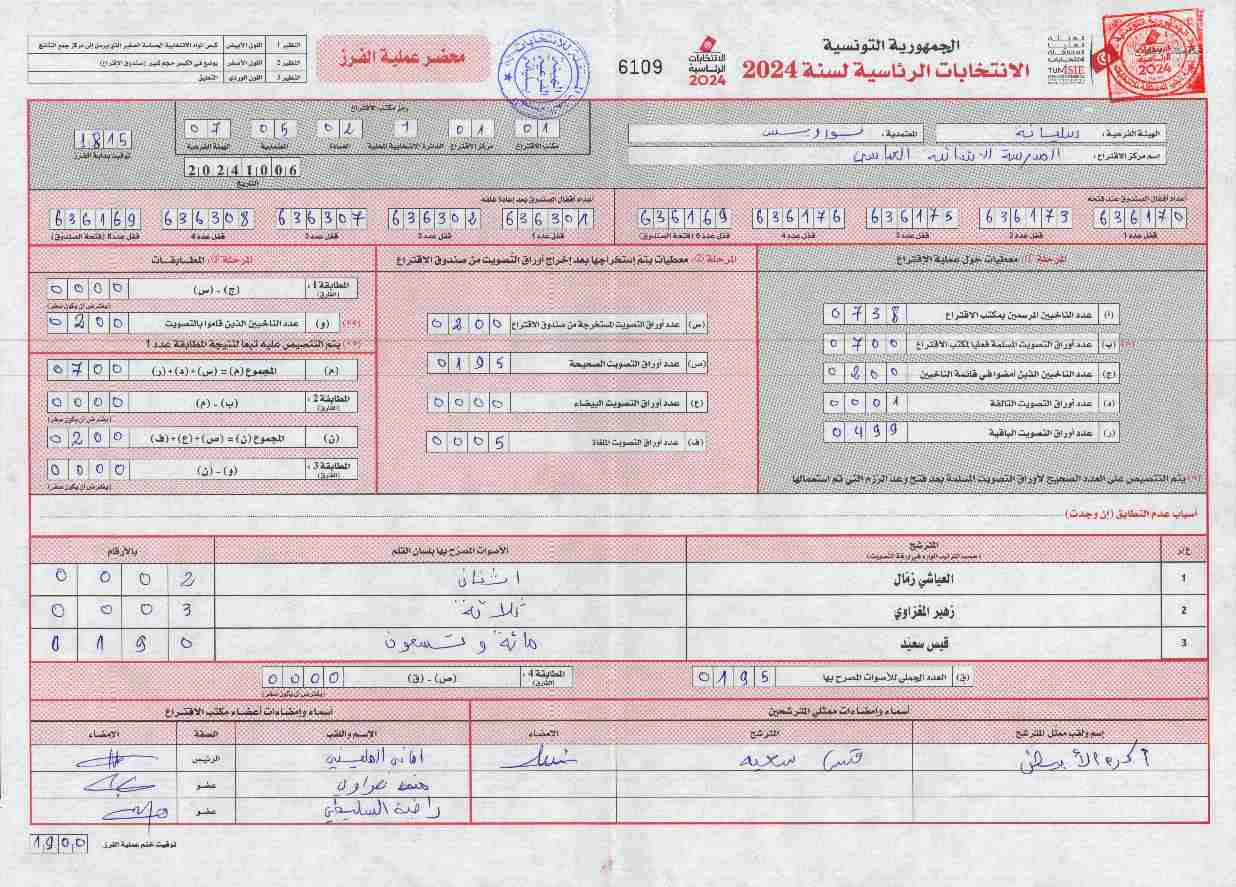 الجمهورية التونسية
الانتخابات الرئاسية لسنة 2024
الانتخابات الرئاسية 2024
6109
محضر عملية الفرز
النظير 1 اللون الأبيض
النظير 2 اللون الأصفر يوضع في الكيس حجم كبير (صندوق الاقتراع)
النظير 3 اللون الوردي التعليق
الهيئة الفرعية: سليانة المعتمدية:
إسم مركز الاقتراع: المدرسة الابتدائية
رمز مكتب الاقتراع
01 01 1 02 05 07
مكتب الاقتراع مركز الاقتراع الدائرة الانتخابية المحلية العمادة المعتمدية الهيئة الفرعية
20241006
التاريخ
1815
توقيت بداية الفرز
أعداد أقفال الصندوق عند فتحه
636170 636173 636175 636176 636169
قفل عدد 1 قفل عدد 2 قفل عدد 3 قفل عدد 4 قفل عدد 5 (فتحة الصندوق)
أعداد أقفال الصندوق بعد إعادة غلقه
636301 636302 636307 636308 636169
قفل عدد 1 قفل عدد 2 قفل عدد 3 قفل عدد 4 قفل عدد 5 (فتحة الصندوق)
المرحلة 1: معطيات حول عملية الاقتراع
(أ) عدد الناخبين المرسمين بمكتب الاقتراع 0738
(ب) عدد أوراق التصويت المسلمة فعليا لمكتب الاقتراع 0700
(ج) عدد الناخبين الذين أمضوا في قائمة الناخبين 0200
(د) عدد أوراق التصويت التالفة 0001
(ر) عدد أوراق التصويت الباقية 0499
(*) يتم التنصيص على العدد الصحيح لأوراق التصويت المسلمة بعد فتح وعد الرزم التي تم استعمالها
المرحلة 2: معطيات يتم إستخراجها بعد إخراج أوراق التصويت من صندوق الاقتراع
(س) عدد أوراق التصويت المستخرجة من صندوق الاقتراع 0200
(ص) عدد أوراق التصويت الصحيحة 0195
(ع) عدد أوراق التصويت البيضاء 0000
(ف) عدد أوراق التصويت الملغاة 0005
المرحلة 3: المطابقات
المطابقة 1: (الفارق) (ج) - (س) 0000
(يفترض أن يكون صفر)
(**) (و) عدد الناخبين الذين قاموا بالتصويت 0200
(**) يتم التنصيص عليه تبعا لنتيجة المطابقة عدد 1
(م) المجموع (م) = (س) + (د) + (ر) 0700
المطابقة 2: (الفارق) (ب) - (م) 0000
(يفترض أن يكون صفر)
(ن) المجموع (ن) = (ص) + (ع) + (ف) 0200
المطابقة 3: (الفارق) (و) - (ن) 0000
(يفترض أن يكون صفر)
أسباب عدم التطابق (إن وجدت)
ع/ر المترشح الأصوات المصرح بها بلسان القلم بالأرقام
(حسب الترتيب الوارد في ورقة التصويت)
1 العياشي زمّال اثنان 0002
2 زهير المغزاوي ثلاثة 0003
3 قيس سعيّد مائة وتسعون 0190
(ق) العدد الجملي للأصوات المصرح بها 0195
المطابقة 4: (الفارق) (ص) - (ق) 0000
(يفترض أن يكون صفر)
أسماء وإمضاءات ممثلي المترشحين
إسم ولقب ممثل المترشح المترشح الامضاء
قيس سعيد
أسماء وإمضاءات أعضاء مكتب الاقتراع
الاسم واللقب الصفة الامضاء
الرئيس
عضو
عضو
توقيت ختم عملية الفرز 1900